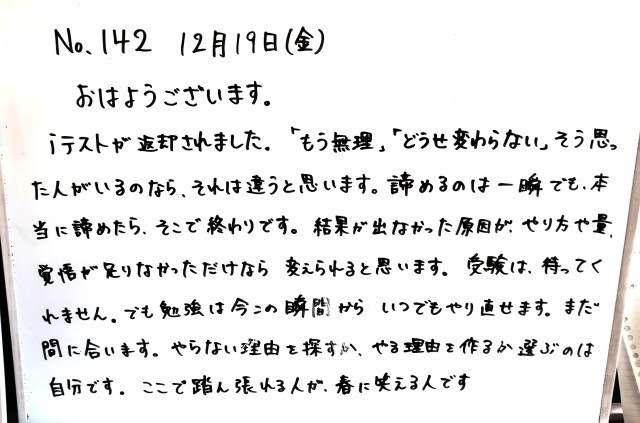 No.142 12月19日(金)
おはようございます。
iテストが返却されました。「もう無理」「どうせ変わらない」そう思っ
た人がいるのなら、それは違うと思います。諦めるのは一瞬でも、本
当に諦めたら、そこで終わりです。結果が出なかった原因が、やり方や量、
覚悟が足りなかっただけなら 変えられると思います。受験は、待ってく
れません。でも勉強は今この瞬間から いつでもやり直せます。まだ
間に合います。やらない理由を探すか、やる理由を作るか選ぶのは
自分です。ここで踏ん張れる人が、春に笑える人です